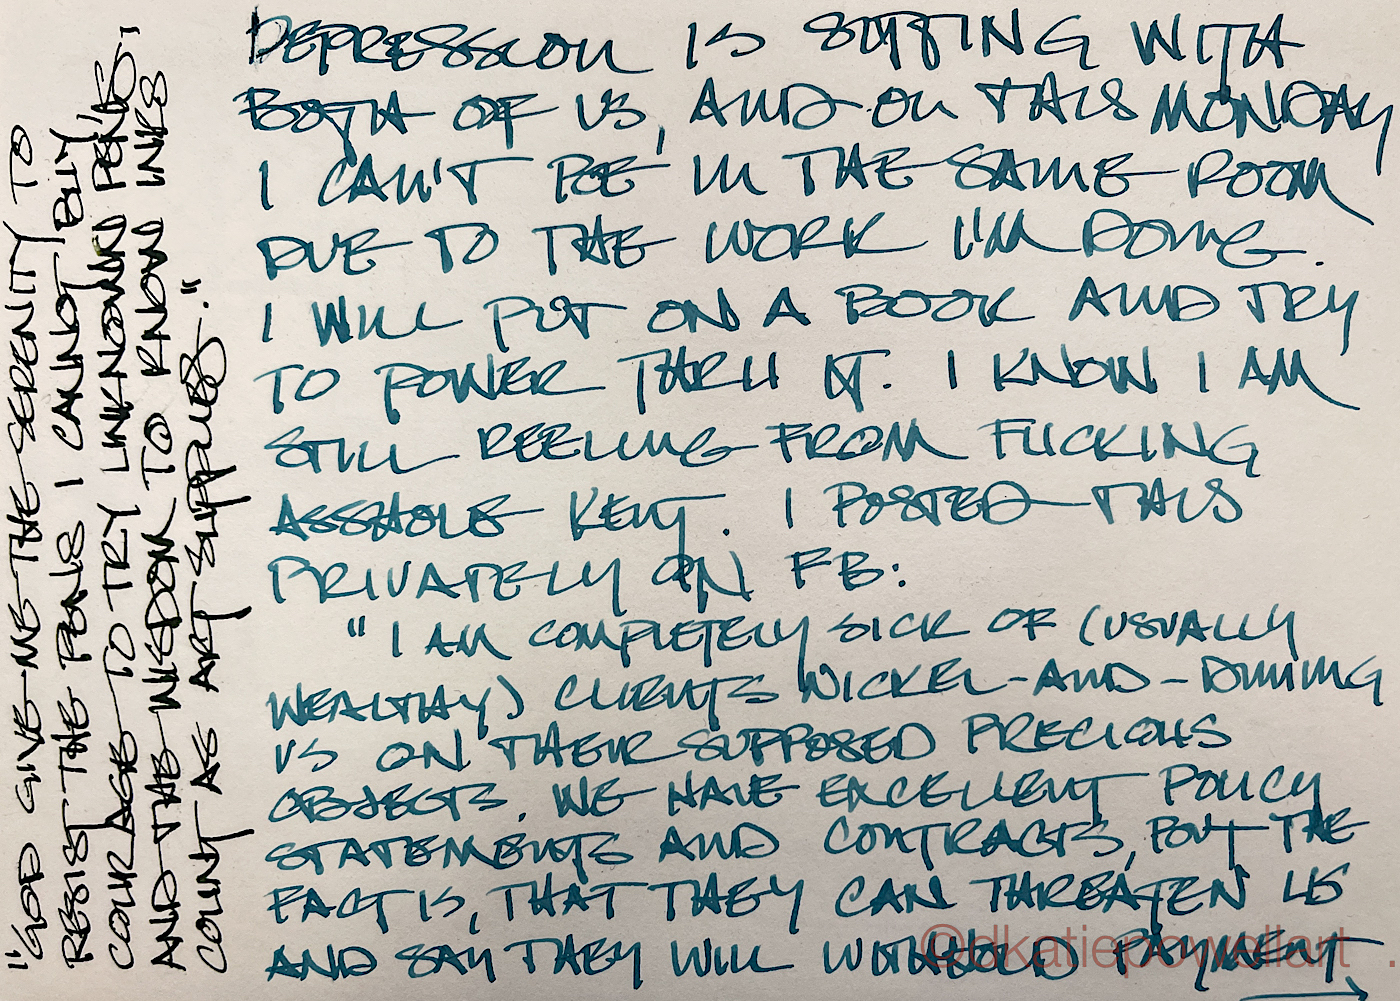 DEPRESSION IS SITTING WITH
BOTH OF US, AND ON THIS MONDAY
I CAN'T BE IN THE SAME ROOM
DUE TO THE WORK I'M DOING.
I WILL PUT ON A BOOK AND TRY
TO POWER THRU IT. I KNOW I AM
STILL REELING FROM FUCKING
ASSHOLE KENT. I POSTED THIS
PRIVATELY ON FB:
"I AM COMPLETELY SICK OF (USUALLY
WEALTHY) CLIENTS NICKEL-AND-DIMING
US ON THEIR SUPPOSED PRECIOUS
OBJECTS. WE HAVE EXCELLENT POLICY
STATEMENTS AND CONTRACTS, BUT THE
FACT IS, THAT THEY CAN THREATEN US
AND SAY THEY WILL WITHHOLD PAYMENT
"GOD GIVE ME THE SERENITY TO
RESIST THE PENS I CANNOT BUY,
COURAGE TO TRY UNKNOWN PENS,
AND THE WISDOM TO KNOW INKS
COUNT AS ART SUPPLIES."
©dkatiepowellart